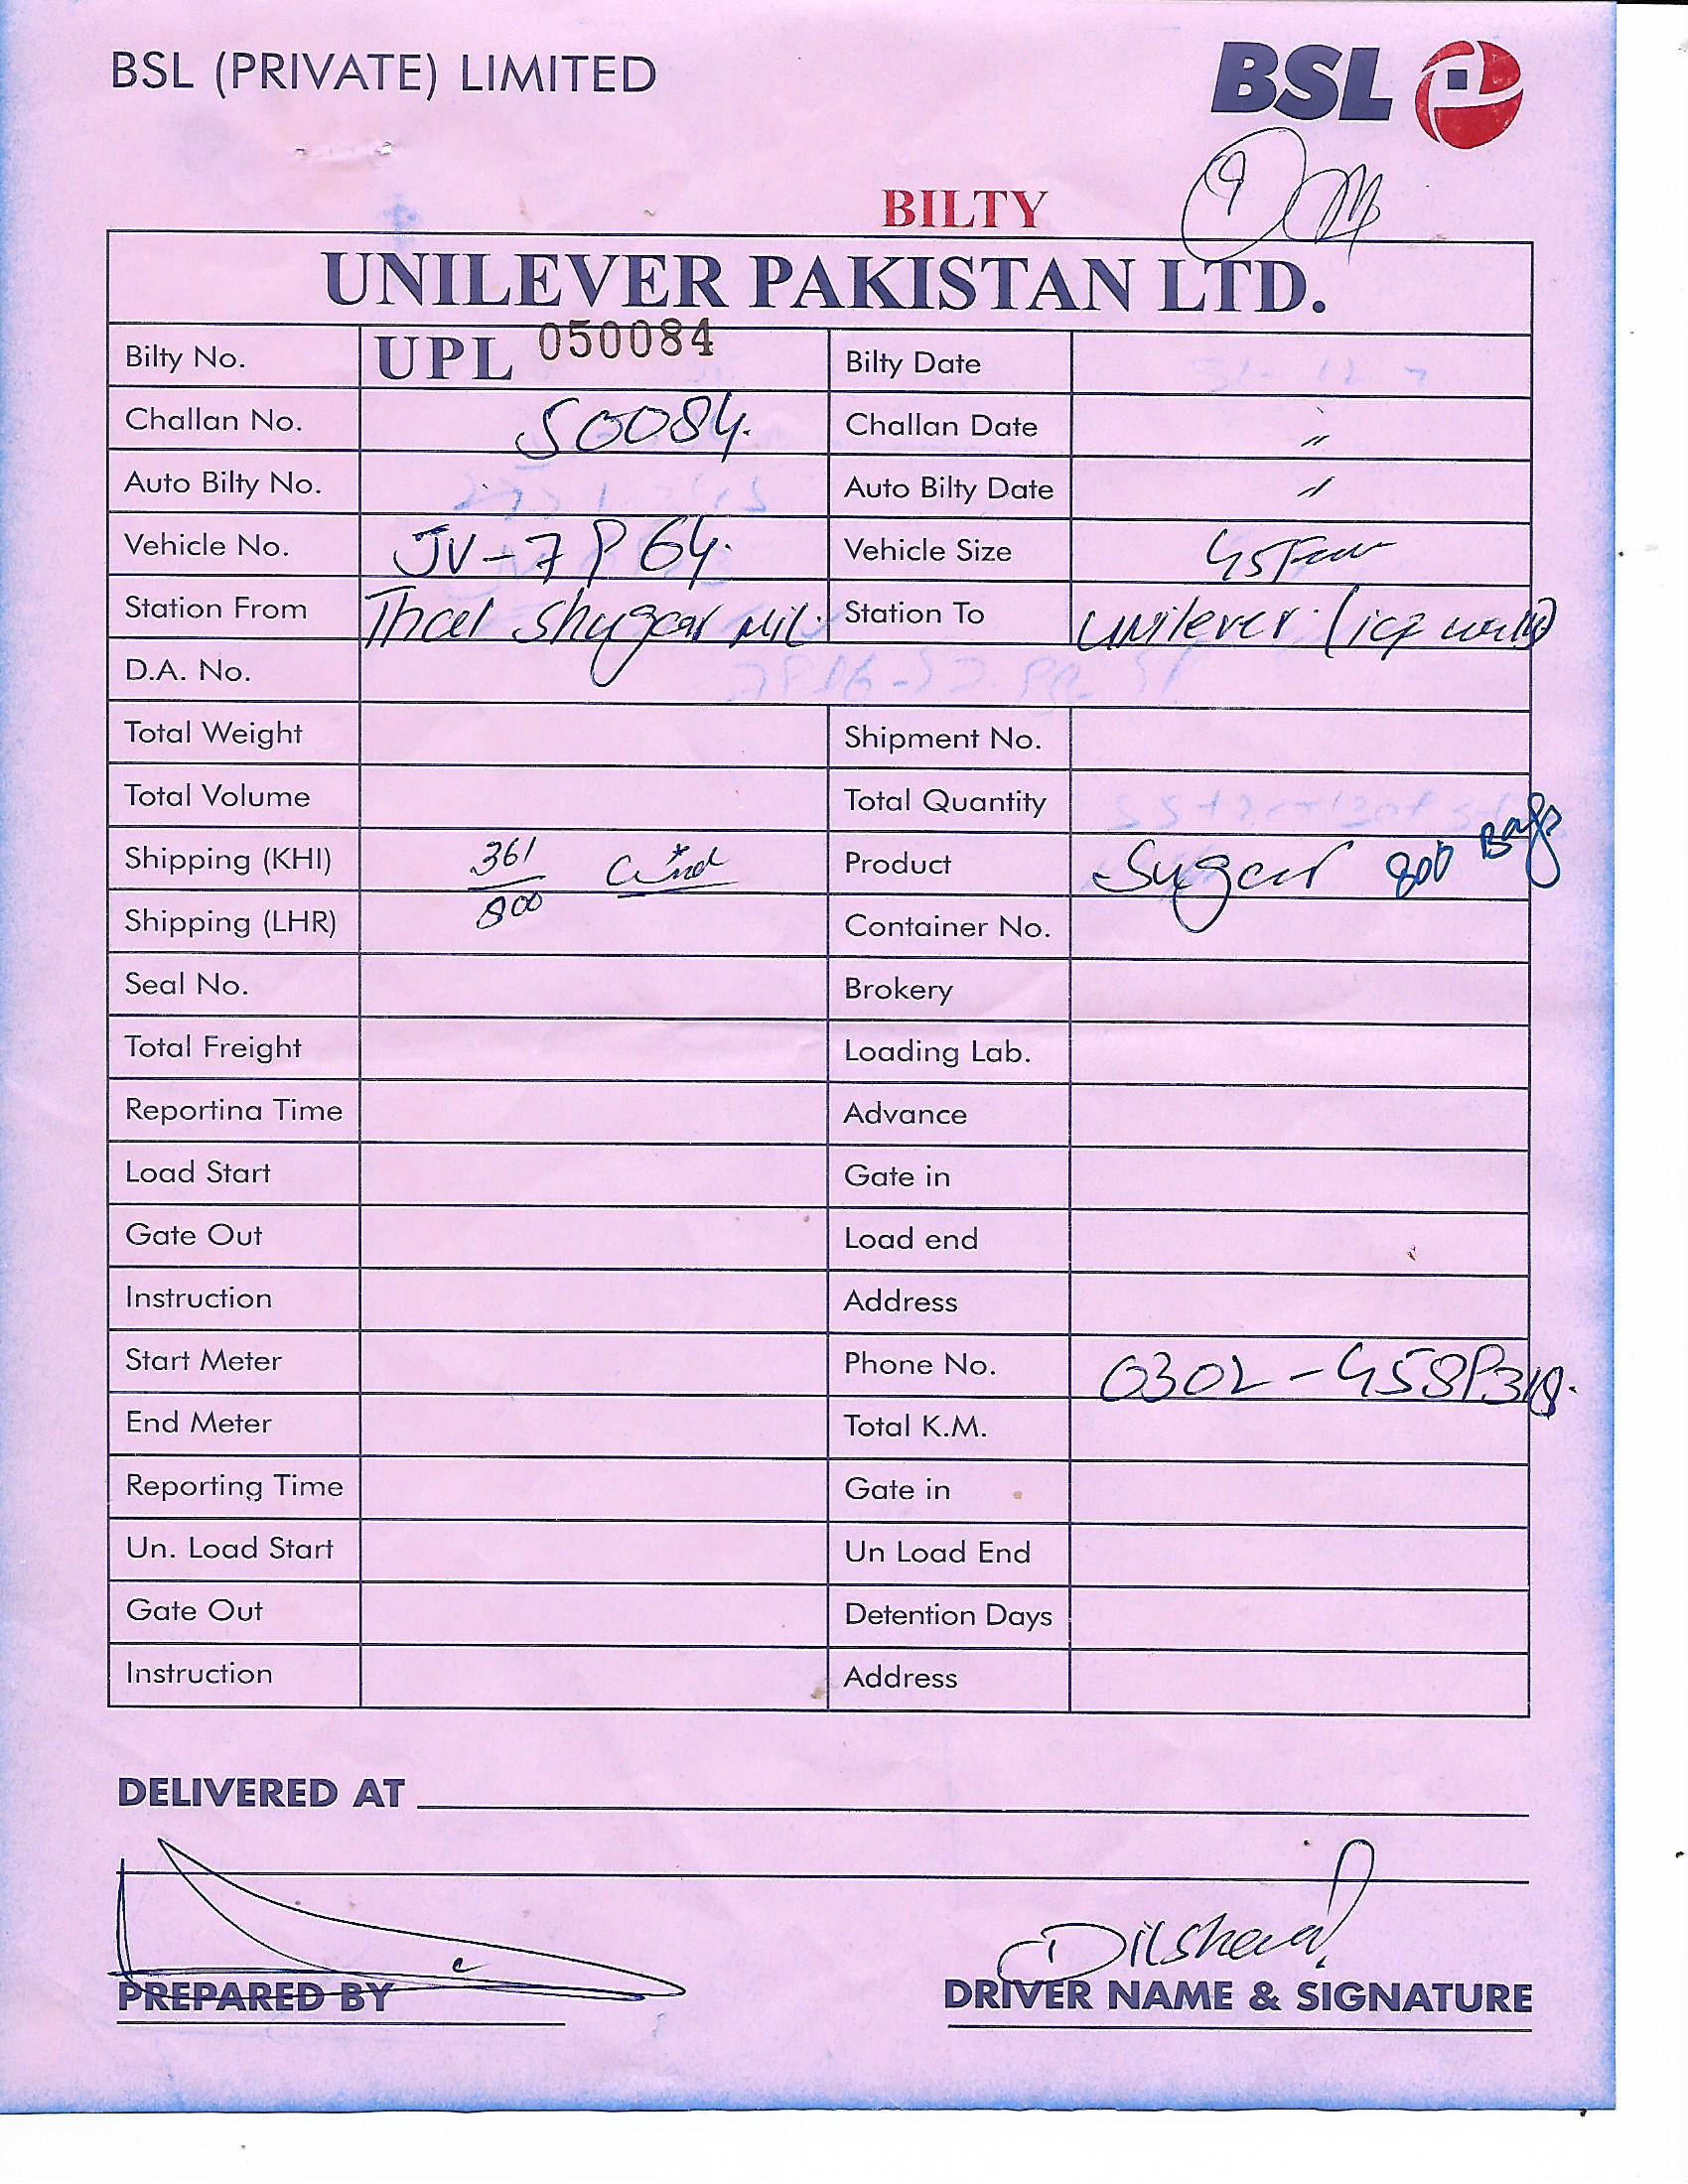 BSL (PRIVATE) LIMITED
BSL
9
BILTY
UNILEVER PAKISTAN LTD.
Bilty No. UPL 050084 Bilty Date
Challan No. 50084. Challan Date "
Auto Bilty No. Auto Bilty Date "
Vehicle No. JV-7 Vehicle Size
Station From Thal Shugar Mil. Station To Unilever (icf
D.A. No.
Total Weight Shipment No.
Total Volume Total Quantity
Shipping (KHI) 361 Product Sugar 800 Bags
Shipping (LHR) 800 Container No.
Seal No. Brokery
Total Freight Loading Lab.
Reporting Time Advance
Load Start Gate in
Gate Out Load end
Instruction Address
Start Meter Phone No. 0302-
End Meter Total K.M.
Reporting Time Gate in
Un. Load Start Un Load End
Gate Out Detention Days
Instruction Address
DELIVERED AT
Dilshad
PREPARED BY DRIVER NAME & SIGNATURE